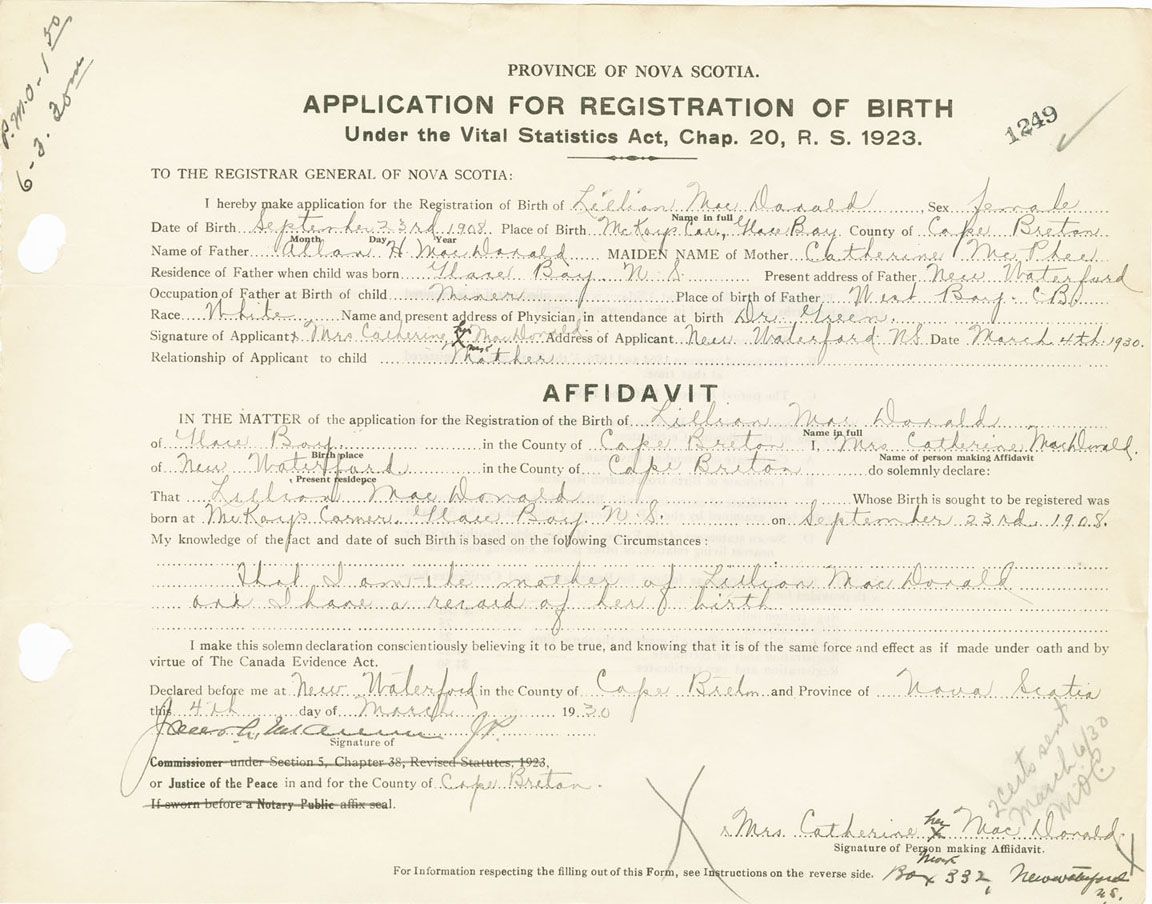 P.M.O - 1 50
6-3. 30
PROVINCE OF NOVA SCOTIA.
APPLICATION FOR REGISTRATION OF BIRTH
1249
Under the Vital Statistics Act, Chap. 20, R. S. 1923.
TO THE REGISTRAR GENERAL OF NOVA SCOTIA:
I hereby make application for the Registration of Birth of Lillian Mac Donald, Sex female
Name in full
Date of Birth September 23rd 1908. Place of Birth McKays Cor., Glace Bay County of Cape Breton
Month Day Year
Name of Father Allan H. MacDonald MAIDEN NAME of Mother Catherine McPhee
Residence of Father when child was born Glace Bay N. S. Present address of Father New Waterford
Occupation of Father at Birth of child Miner Place of birth of Father West Bay. C.B.
Race White Name and present address of Physician in attendance at birth Dr. Green.
Signature of Applicant x Mrs Catherine her x mark MacDonald Address of Applicant New Waterford NS. Date March 4th. 1930.
Relationship of Applicant to child Mother
AFFIDAVIT
IN THE MATTER of the application for the Registration of the Birth of Lillian Mac Donald
Name in full
of Glace Bay. in the County of Cape Breton I, Mrs. Catherine MacDonald.
Birth place Name of person making Affidavit
of New Waterford. in the County of Cape Breton do solemnly declare:
Present residence
That Lillian MacDonald Whose Birth is sought to be registered was
born at McKays Corner, Glace Bay N. S. on September 23rd. 1908.
My knowledge of the fact and date of such Birth is based on the following Circumstances:
That I am the mother of Lillian MacDonald
and I have a record of her birth
I make this solemn declaration conscientiously believing it to be true, and knowing that it is of the same force and effect as if made under oath and by
virtue of The Canada Evidence Act.
Declared before me at New Waterford in the County of Cape Breton and Province of Nova Scotia
this 4th day of March 1930
J.P.
Signature of
Commissioner under Section 5, Chapter 38, Revised Statutes, 1923,
or Justice of the Peace in and for the County of Cape Breton.
If sworn before a Notary Public affix seal.
2 certs sent
March 6/30
x Mrs. Catherine her x mark Mac Donald
Signature of Person making Affidavit.
For Information respecting the filling out of this Form, see Instructions on the reverse side.
Box 332, Newwaterford
N.S.